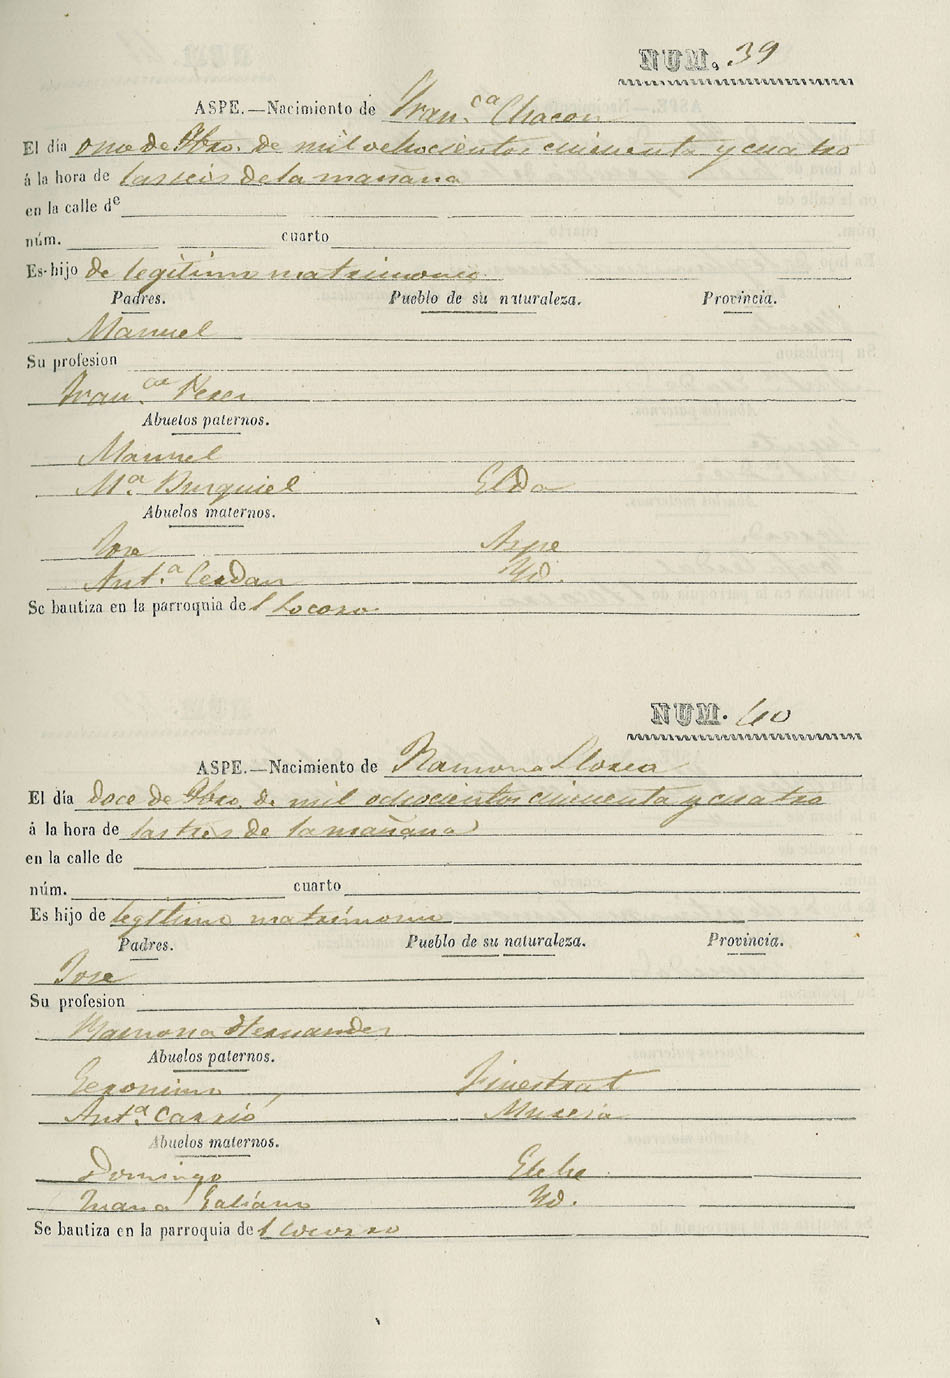 NUM. 39
ASPE.—Nacimiento de Fran.ca Chacon
El día once de 9bro. de mil ochocientos cincuenta y cuatro
á la hora de las seis de la mañana
en la calle de
núm. cuarto
Es hijo de legitimo matrimonio
Padres. Pueblo de su naturaleza. Provincia.
Manuel
Su profesion
Fran.ca Perez
Abuelos paternos.
Manuel
M.a Burguiel Elda
Abuelos maternos.
Jose Aspe
Ant.a Cerdan Yd.
Se bautiza en la parroquia del Socorro
NUM. 40
ASPE.—Nacimiento de Ramona Llorca
El día doce de 9bro. de mil ochocientos cincuenta y cuatro
á la hora de las tres de la mañana
en la calle de
núm. cuarto
Es hijo de legitimo matrimonio
Padres. Pueblo de su naturaleza. Provincia.
Jose
Su profesion
Ramona Hernandez
Abuelos paternos.
Geronimo Finestrat
Ant.a Carrió Murcia
Abuelos maternos.
Domingo Elche
Juana Galiano Yd.
Se bautiza en la parroquia del Socorro